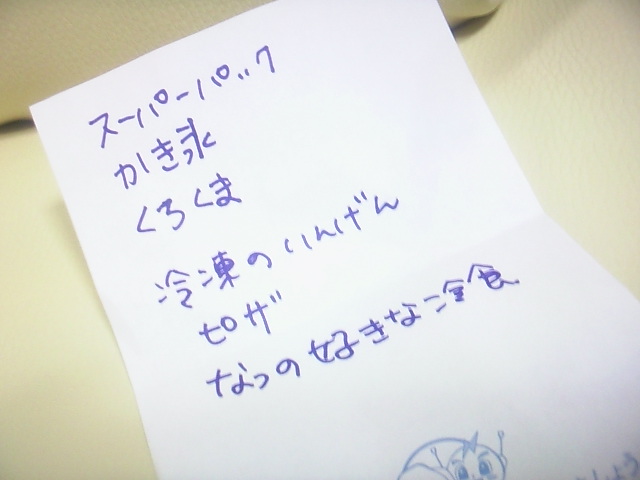 スーパーパック
かき氷
くろくま
冷凍のいんげん
ピザ
なつの好きなご